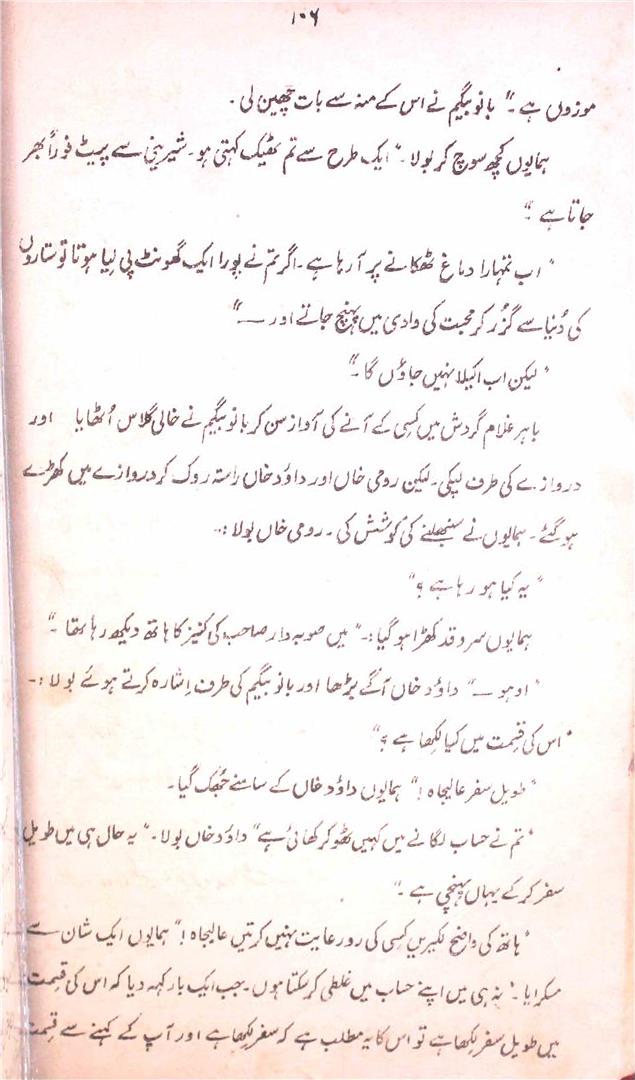 ۱۰۶
موزوں ہے۔" بانو بیگم نے اس کے منہ سے بات چھین لی۔
ہمایوں کچھ سوچ کر بولا۔ "ایک طرح سے تم ٹھیک کہتی ہو۔ شیرینی سے پیٹ فوراً بھر
جاتا ہے۔"
"اب تمہارا دماغ ٹھکانے پر آ رہا ہے۔ اگر تم نے پورا ایک گھونٹ پی لیا ہوتا تو ستاروں
کی دُنیا سے گزُر کر محبت کی وادی میں پہنچ جاتے اور ——"
"لیکن اب اکیلا نہیں جاؤں گا۔"
باہر غلام گردش میں کسی کے آنے کی آواز سن کر بانو بیگم نے خالی گلاس اُٹھایا اور
دروازے کی طرف لپکی۔ لیکن رومی خاں اور داوٗد خاں راستہ روک کر دروازے میں کھڑے
ہو گئے۔ ہمایوں نے سنبھلنے کی کوشش کی۔ رومی خاں بولا :۔
"یہ کیا ہو رہا ہے ؟"
ہمایوں سرو قد کھڑا ہو گیا :۔ "میں صوبہ دار صاحب کی کنیز کا ہاتھ دیکھ رہا تھا۔"
"اوہو ——" داوٗد خاں آگے بڑھا اور بانو بیگم کی طرف اِشارہ کرتے ہوئے بولا :۔
"اس کی قسمت میں کیا لکھا ہے ؟"
"طویل سفر عالیجاہ !" ہمایوں داوٗد خاں کے سامنے جُھک گیا۔
"تم نے حساب لگانے میں کہیں ٹھوکر کھائی ہے" داوٗد خاں بولا۔ "یہ حال ہی میں طویل
سفر کر کے یہاں پہنچی ہے۔"
"ہاتھ کی واضح لکیریں کسی کی رو رعایت نہیں کرتیں عالیجاہ !" ہمایوں ایک شان سے
مسکرایا۔ "نہ ہی میں اپنے حساب میں غلطی کر سکتا ہوں۔ جب ایک بار کہہ دیا کہ اس کی قسمت
میں طویل سفر لکھا ہے تو اس کا یہ مطلب ہے کہ سفر لکھا ہے اور آپ کے کہنے سے قسمت